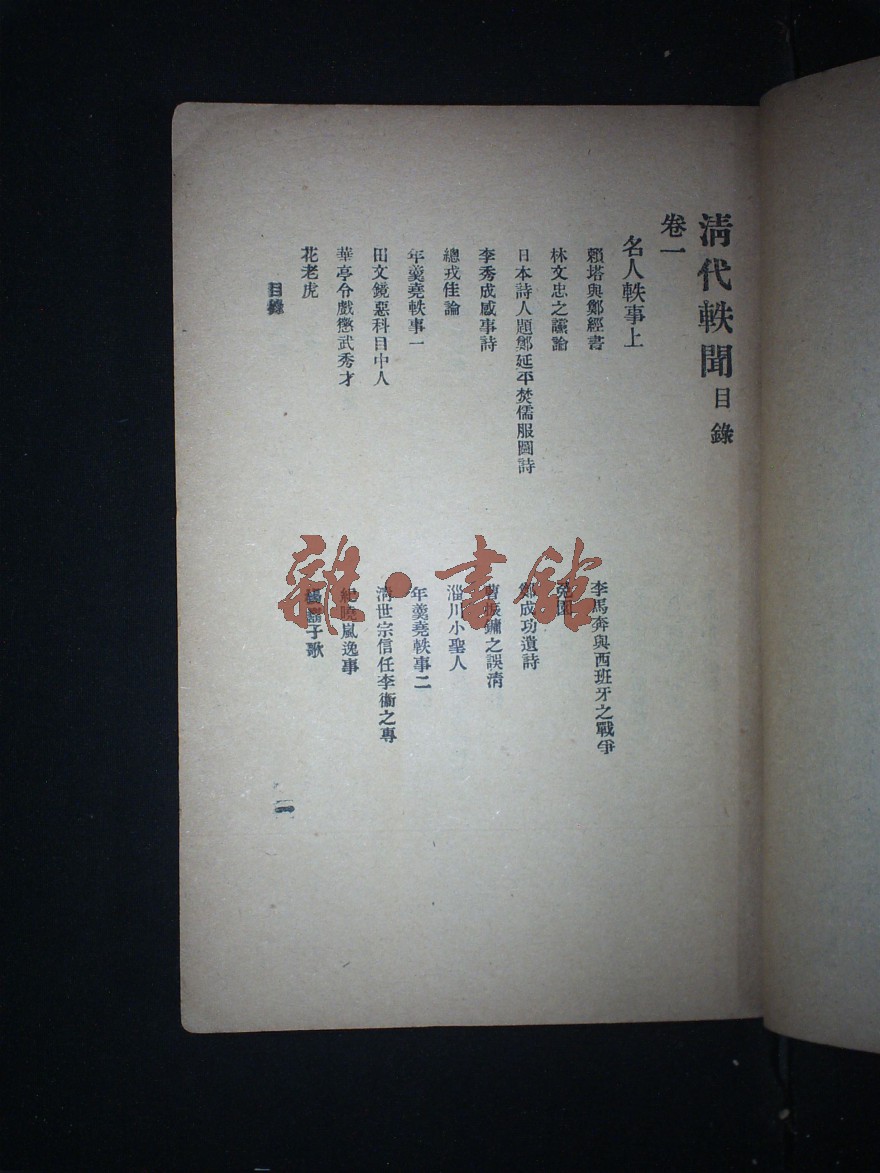 清代軼聞目錄
卷一
名人軼事上
賴塔與鄭經書
李馬奔與西班牙之戰爭
林文忠之讜論
日本詩人題鄭延平焚儒服圖詩
鄭成功遺詩
李秀成感事詩
曹振鏞之誤清
總戎佳論
淄川小聖人
年羹堯軼事一
年羹堯軼事二
田文鏡惡科目中人
清世宗信任李衞之專
華亭令戲懲武秀才
紀曉嵐逸事
花老虎
楊鬍子歌
目錄
雜·書館